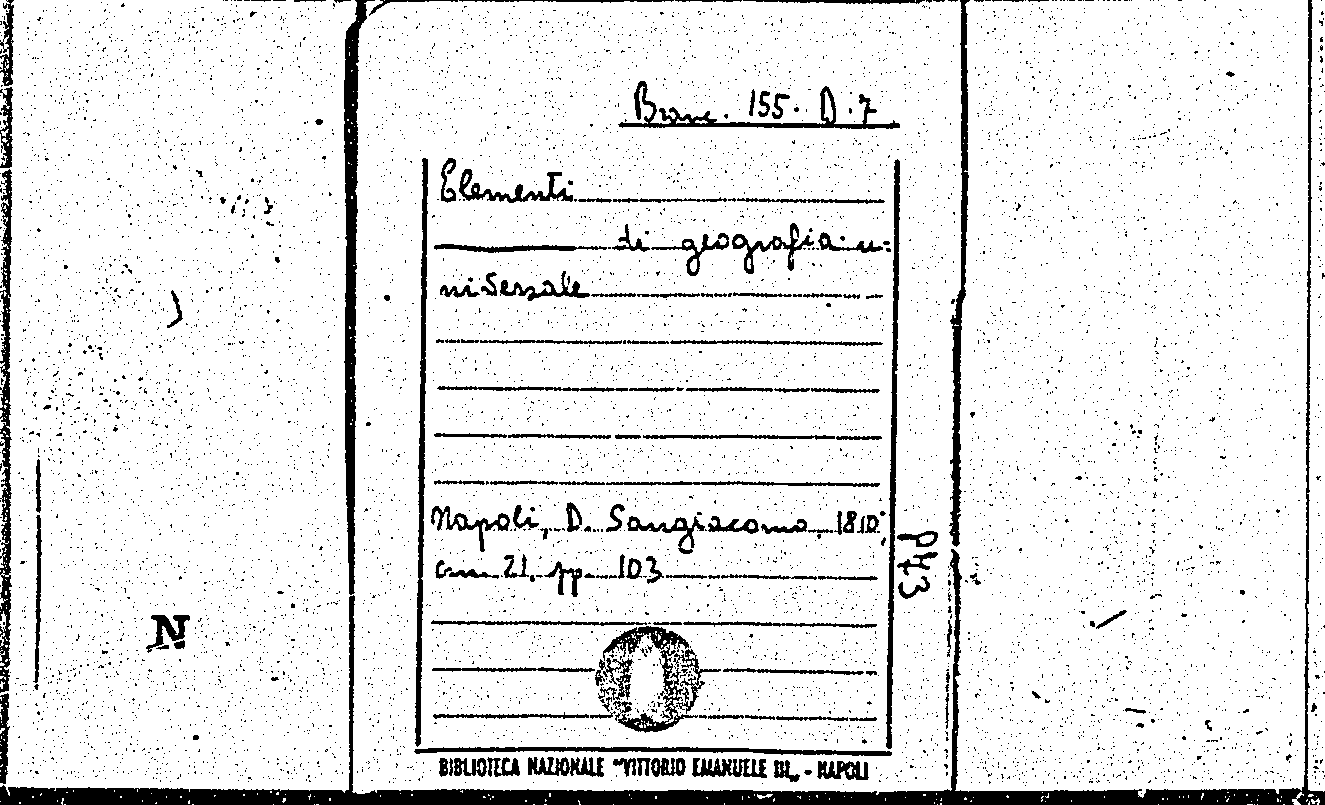 Branc. 155. D. 7
Elementi
di geografia u=
niversale
Napoli, D. Sangiacomo, 1810;
cm. 21. pp. 103
P43
N
BIBLIOTECA NAZIONALE "VITTORIO EMANUELE III„ - NAPOLI